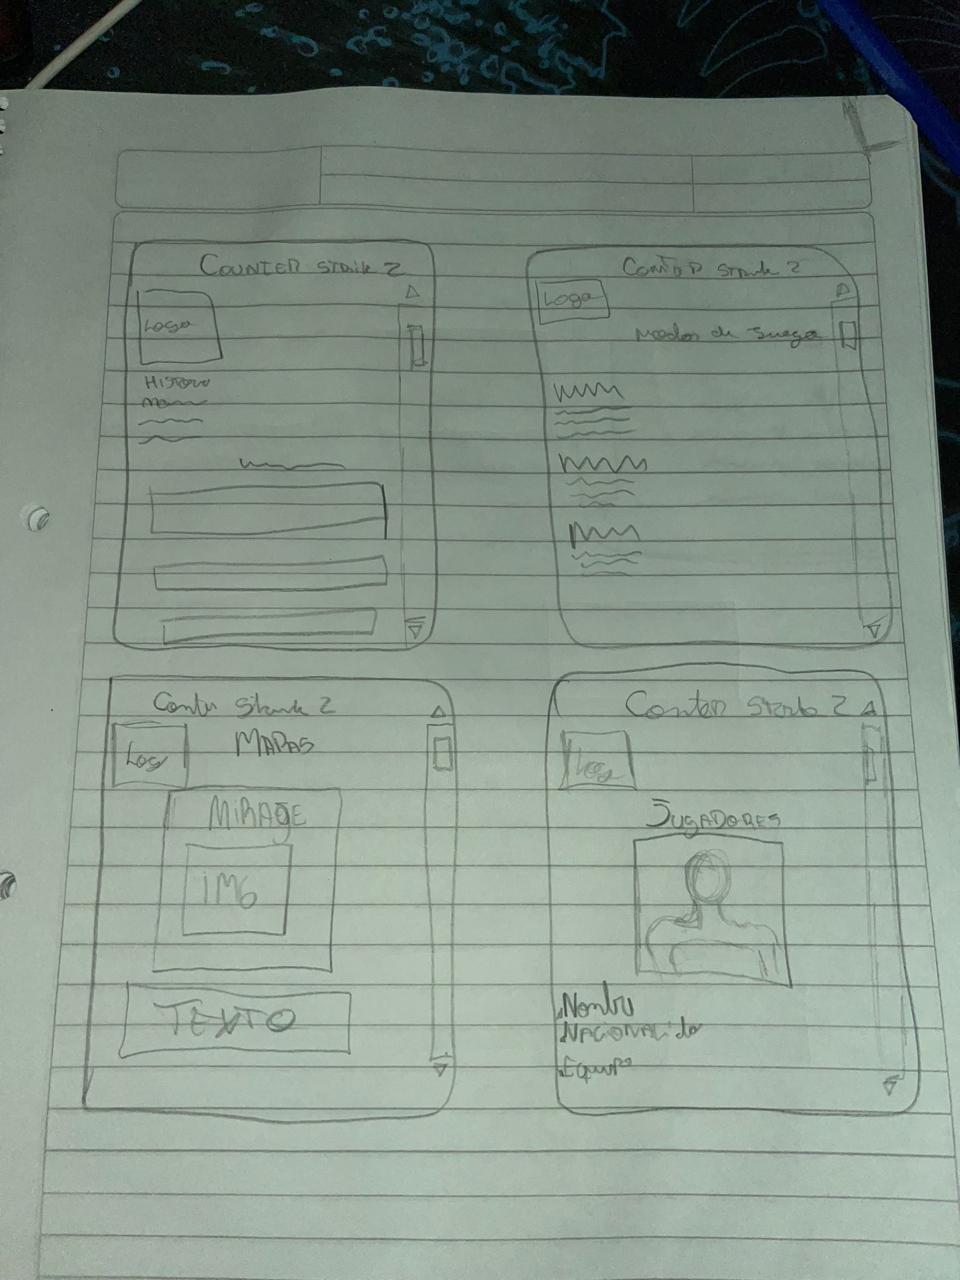 COUNTER STRIKE 2
Logo
Historia
Contor Strike 2
Logo
Modos de Juego
Contr Strike 2
Logo
MAPAS
MIRAGE
IMG
TEXTO
Conter Strike 2
Logo
JUGADORES
Nombre
NACIONALIDAD
Equipo